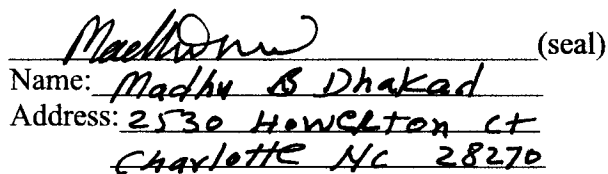 (seal)
Name: Madhu B Dhakad
Address: 2530 Howerton ct
Charlotte NC 28270